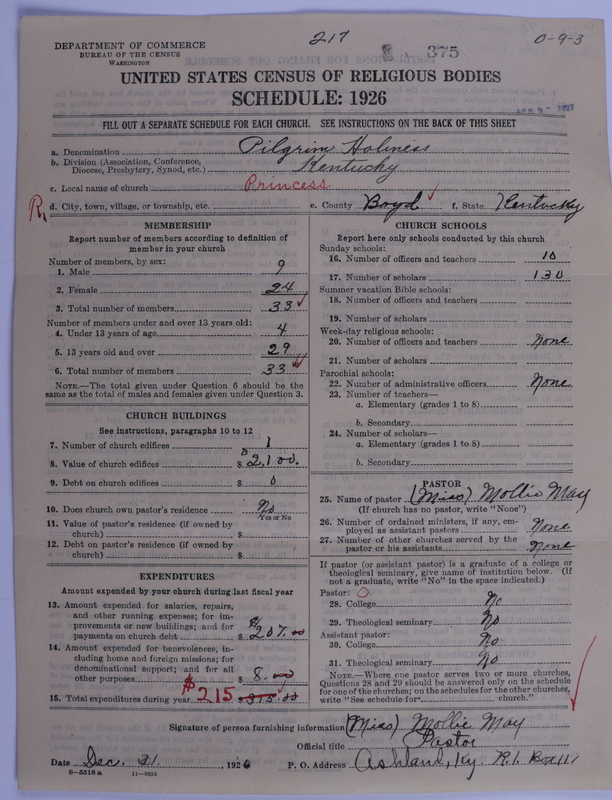 217
375
0-9-3
DEPARTMENT OF COMMERCE
BUREAU OF THE CENSUS
WASHINGTON
UNITED STATES CENSUS OF RELIGIOUS BODIES
SCHEDULE: 1926
FILL OUT A SEPARATE SCHEDULE FOR EACH CHURCH. SEE INSTRUCTIONS ON THE BACK OF THIS SHEET
a. Denomination Pilgrim Holiness
b. Division (Association, Conference,
Diocese, Presbytery, Synod, etc.) Kentucky
c. Local name of church Princess
R. d. City, town, village, or township, etc. e. County Boyd f. State Kentucky
MEMBERSHIP
Report number of members according to definition of
member in your church
Number of members, by sex:
1. Male 9
2. Female 24
3. Total number of members 33
Number of members under and over 13 years old:
4. Under 13 years of age 4
5. 13 years old and over 29
6. Total number of members 33
NOTE.—The total given under Question 6 should be
same as the total of males and females given under Question 3.
CHURCH BUILDINGS
See instructions, paragraphs 10 to 12
7. Number of church edifices 1
8. Value of church edifices $ 2,100.
9. Debt on church edifices $ 0
10. Does church own pastor's residence No
Yes or No
11. Value of pastor's residence (if owned by
church) $
12. Debt on pastor's residence (if owned by
church) $
EXPENDITURES
Amount expended by your church during last fiscal year
13. Amount expended for salaries, repairs,
and other running expenses; for im-
provements or new buildings; and for
payments on church debt $ 207.00
14. Amount expended for benevolences, in-
cluding home and foreign missions; for
denominational support; and for all
other purposes $ 8.00
15. Total expenditures during year $215
CHURCH SCHOOLS
Report here only schools conducted by this church
Sunday schools:
16. Number of officers and teachers 10
17. Number of scholars 130
Summer vacation Bible schools:
18. Number of officers and teachers
19. Number of scholars
Week-day religious schools:
20. Number of officers and teachers None
21. Number of scholars
Parochial schools:
22. Number of administrative officers None
23. Number of teachers—
a. Elementary (grades 1 to 8)
b. Secondary
24. Number of scholars—
a. Elementary (grades 1 to 8)
b. Secondary
PASTOR
25. Name of pastor (Miss) Mollie May
(If church has no pastor, write "None")
26. Number of ordained ministers, if any, em-
ployed as assistant pastors None
27. Number of other churches served by the
pastor or his assistants None
If pastor (or assistant pastor) is a graduate of a college or
theological seminary, give name of institution below. (If
not a graduate, write "No" in the space indicated.)
Pastor: O
28. College No
29. Theological seminary No
Assistant pastor:
30. College No
31. Theological seminary No
NOTE.—Where one pastor serves two or more churches,
Questions 28 and 29 should be answered only on the schedule
for one of the churches; on the schedules for the other churches,
write "See schedule for church."
Signature of person furnishing information (Miss) Mollie May
Official title Pastor
Date Dec. 31, 1926 P. O. Address Ashland, Ky. R.1. Box 117
6—5518a 11—9204